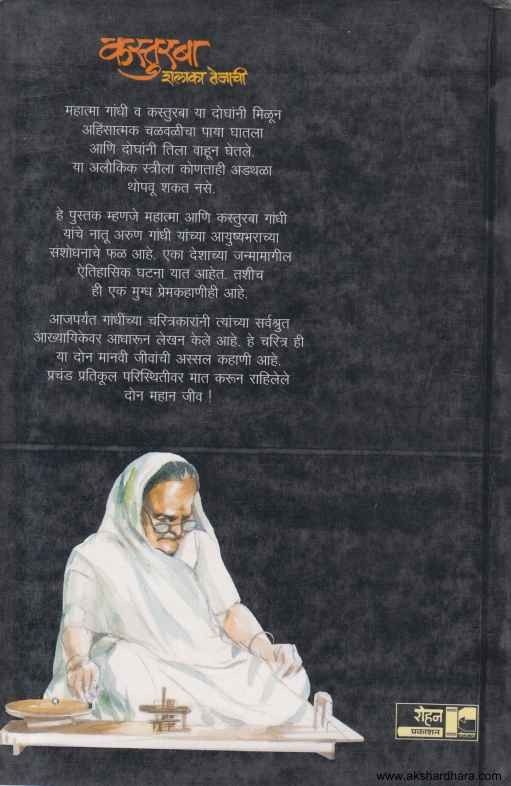 कस्तुरबा
शलाका तेजाची
महात्मा गांधी व कस्तुरबा या दोघांनी मिळून
अहिंसात्मक चळवळीचा पाया घातला
आणि दोघांनी तिला वाहून घेतले.
या अलौकिक स्त्रीला कोणताही अडथळा
थोपवू शकत नसे.
हे पुस्तक म्हणजे महात्मा आणि कस्तुरबा गांधी
यांचे नातू अरुण गांधी यांच्या आयुष्यभराच्या
संशोधनाचे फळ आहे. एका देशाच्या जन्मामागील
ऐतिहासिक घटना यात आहेत. तशीच
ही एक मुग्ध प्रेमकहाणीही आहे.
आजपर्यंत गांधींच्या चरित्रकारांनी त्यांच्या सर्वश्रुत
आख्यायिकेवर आधारून लेखन केले आहे. हे चरित्र ही
या दोन मानवी जीवांची अस्सल कहाणी आहे.
प्रचंड प्रतिकूल परिस्थितीवर मात करून राहिलेले
दोन महान जीव !
रोहन
प्रकाशन
www.akshardhara.com